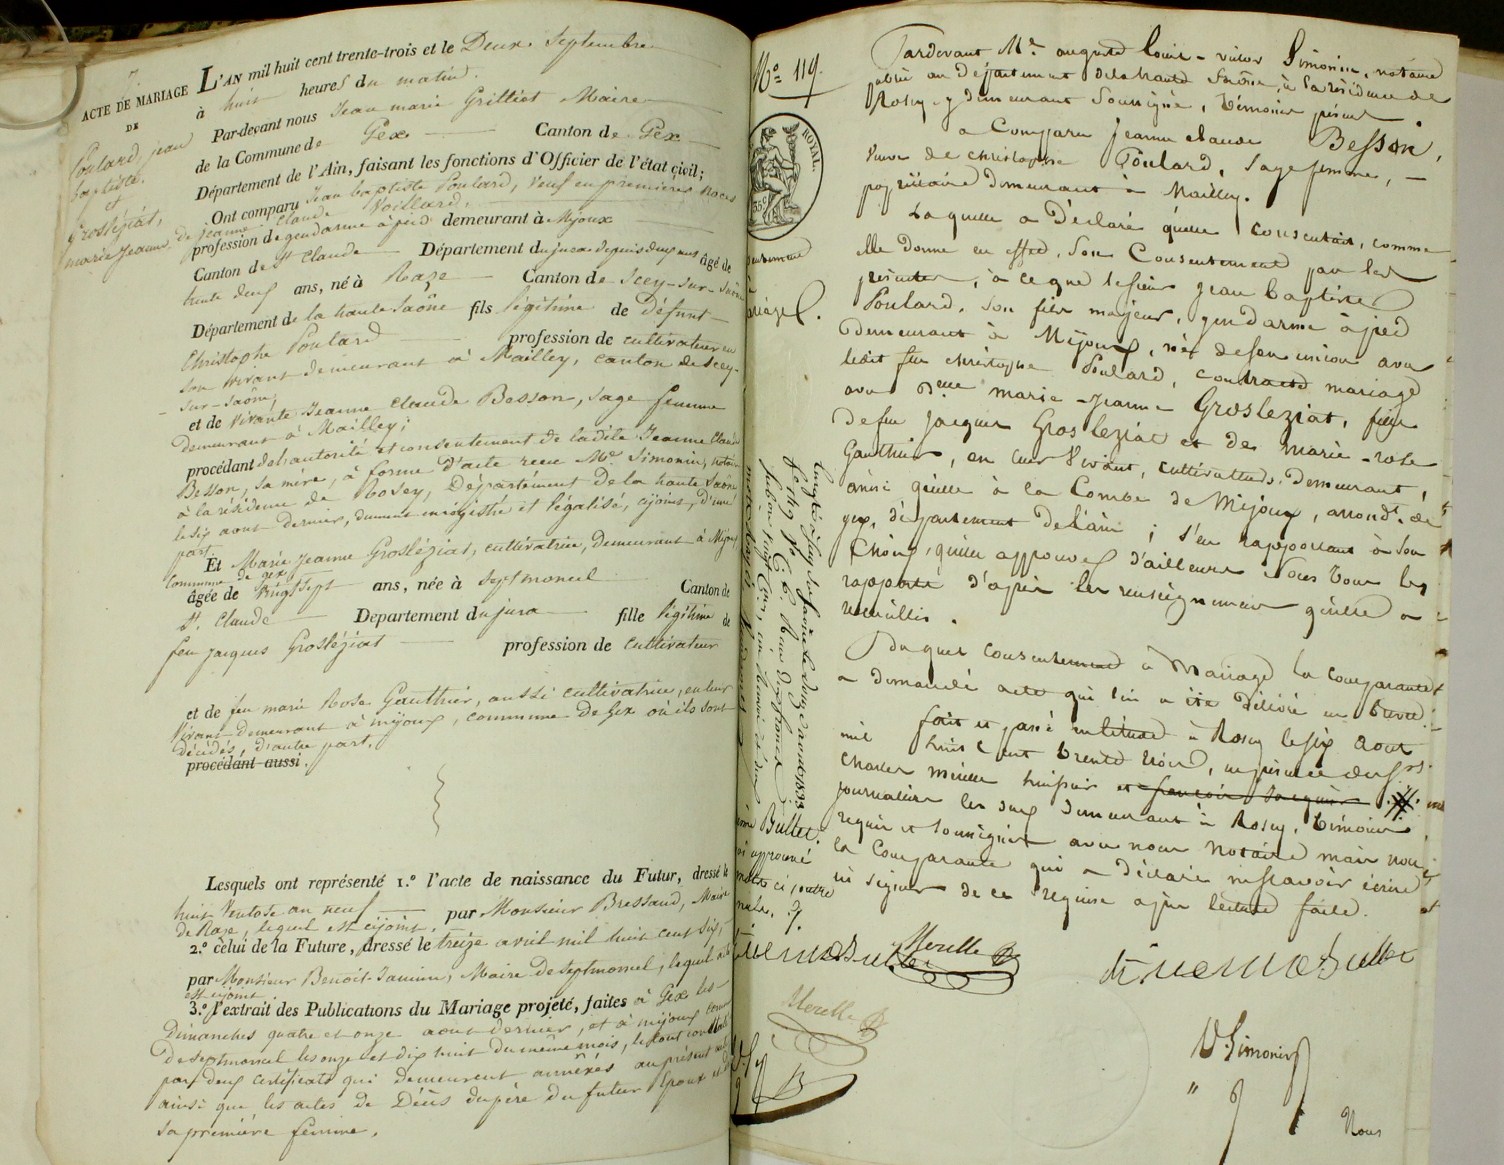 7.
ACTE DE MARIAGE
DE
Poulard jean
baptiste.
et
Grosléziat,
marie Jeanne
L'AN mil huit cent trente-trois et le Deux Septembre
à huit heures du matin.
Par-devant nous Jean marie Grilliet Maire
de la Commune de Gex Canton de Gex
Département de l'Ain, faisant les fonctions d'Officier de l'état civil;
Ont comparu Jean baptiste Poulard, Veuf en premieres Noces
de Jeanne Claude Voillard,
profession de gendarme à pied demeurant à Mijoux
Canton de St Claude Département du jura depuis deux ans âgé de
trente deux ans, né à Raze Canton de Scey-sur-Saône
Département de la haute Saône fils légitime de Défunt
Christophe Poulard profession de cultivateur en
son vivant demeurant à Mailley, canton de Scey-
-sur-Saône,
et de vivante Jeanne Claude Besson, sage femme
demeurant à Mailley;
procédant de l'autorité et consentement de ladite Jeanne Claude
Besson, sa mère, à forme d'acte reçu Me Simonin, notaire
à la résidence de Rosey, Département de la haute Saône
le six aout dernier, dument enregistré et légalisé, cijoint, d'une
part.
Et Marie Jeanne Grosléziat, cultivatrice, demeurant à Mijoux
commune de Gex
âgée de vingt sept ans, née à Septmoncel Canton de
St. Claude Departement du jura fille légitime de
feu Jacques Grosléziat profession de cultivateur
et de feu marie Rose Gauthier, aussi cultivatrice, en leur
vivant demeurant à mijoux, commune de Gex où ils sont
décédés, d'autre part.
procédant aussi.
Lesquels ont représenté 1.º l'acte de naissance du Futur, dressé le
huit Ventose an neuf par Monsieur Bressand, Maire
de Raze, lequel est cijoint.
2.º celui de la Future, dressé le treize avril mil huit cent six,
par Monsieur Benoit-Jannin, Maire de Septmoncel, lequel
est cijoint
3.º l'extrait des Publications du Mariage projeté, faites à Gex les
Dimanches quatre et onze aout dernier, et à mijoux
de Septmoncel les onze et dix huit du même mois, le tout constaté
par deux certificats qui demeurent annexés au présent acte
ainsi que les actes de Décès du père du futur Epoux et de
sa première femme.
No 119.
ROYAL.
35 c
Pardevant Me auguste Louis-victor Simonin, notaire
public au Département de la haute Saône, à la résidence de
Rosey y demeurant Soussigné, témoins présent.
a Comparu Jeanne claude Besson,
veuve de christophe Poulard, Sage femme,
propriétaire demeurant à Mailley.
Laquelle a Déclaré quelle consentait, comme
elle donne en effet, Son Consentement par les
présentes, à ce que le sieur Jean baptiste
Poulard, son fils majeur, gendarme à pied
demeurant à Mijoux, né de son union avec
ledit feu christophe Poulard, contracte mariage
avec Dlle marie-Jeanne Grosleziat, fille
de feu Jacques Grosleziat et de marie-rose
Gauthier, en leur vivant, cultivateurs, demeurant,
ainsi quelle à la Combe de Mijoux, arrondt. de
gex, département de l'ain; s'en rapportant à son
Choix, quelle approuve d'ailleurs sous tous les
rapports d'après les renseignemens quelle a
recueillis.
Duquel consentement à Mariage la comparante
a demandé acte qui lui a été Délivré en brevet.
fait et passé en l'étude à Rosey le six aout
mil huit cent trente trois, en présence des Srs
Charles Merelle huissier et
journalier les deux demeurant à Rosey, témoins
requis et soussignés avec nous Notaire mais non
la Comparante qui a déclaré ne scavoir écrire
ni signer de ce requise après lecture faite.
Bullet.
approuvé
Merelle
Etienne Bullet
Merelle
V. Simonin
Nous